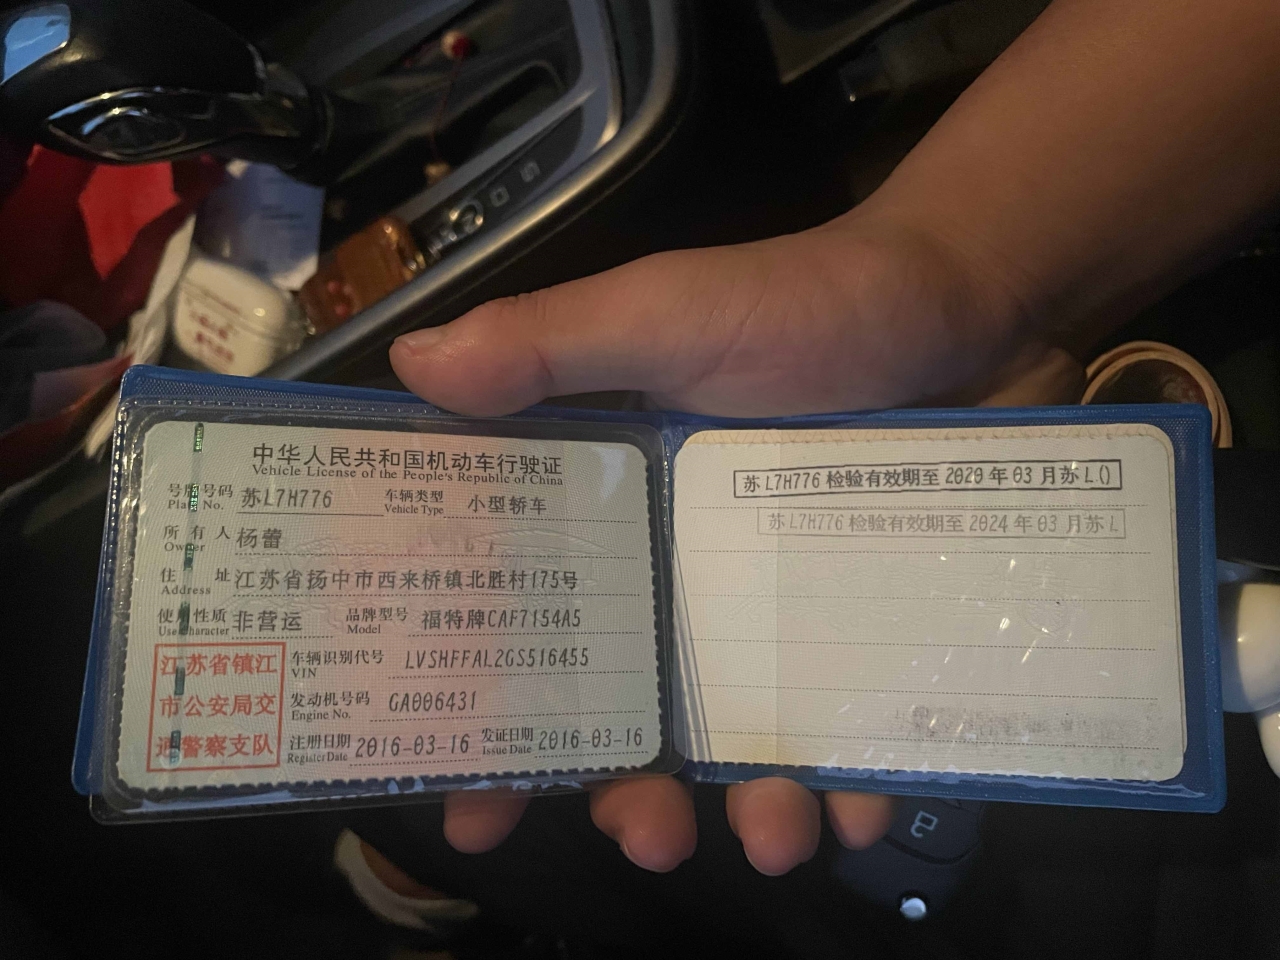 中华人民共和国机动车行驶证
Vehicle License of the People's Republic of China
号牌号码 苏L7H776 车辆类型 小型轿车
Plate No. Vehicle Type
所有人 杨蕾
Owner
住址 江苏省扬中市西来桥镇北胜村175号
Address
使用性质 非营运 品牌型号 福特牌CAF7154A5
Use Character Model
车辆识别代号 LVSHFFAL2GS516455
VIN
发动机号码 GA006431
Engine No.
注册日期 2016-03-16 发证日期 2016-03-16
Register Date Issue Date
江苏省镇江
市公安局交
通警察支队
苏L7H776 检验有效期至 2020 年 03 月苏L()
苏L7H776 检验有效期至 2024 年 03 月苏L